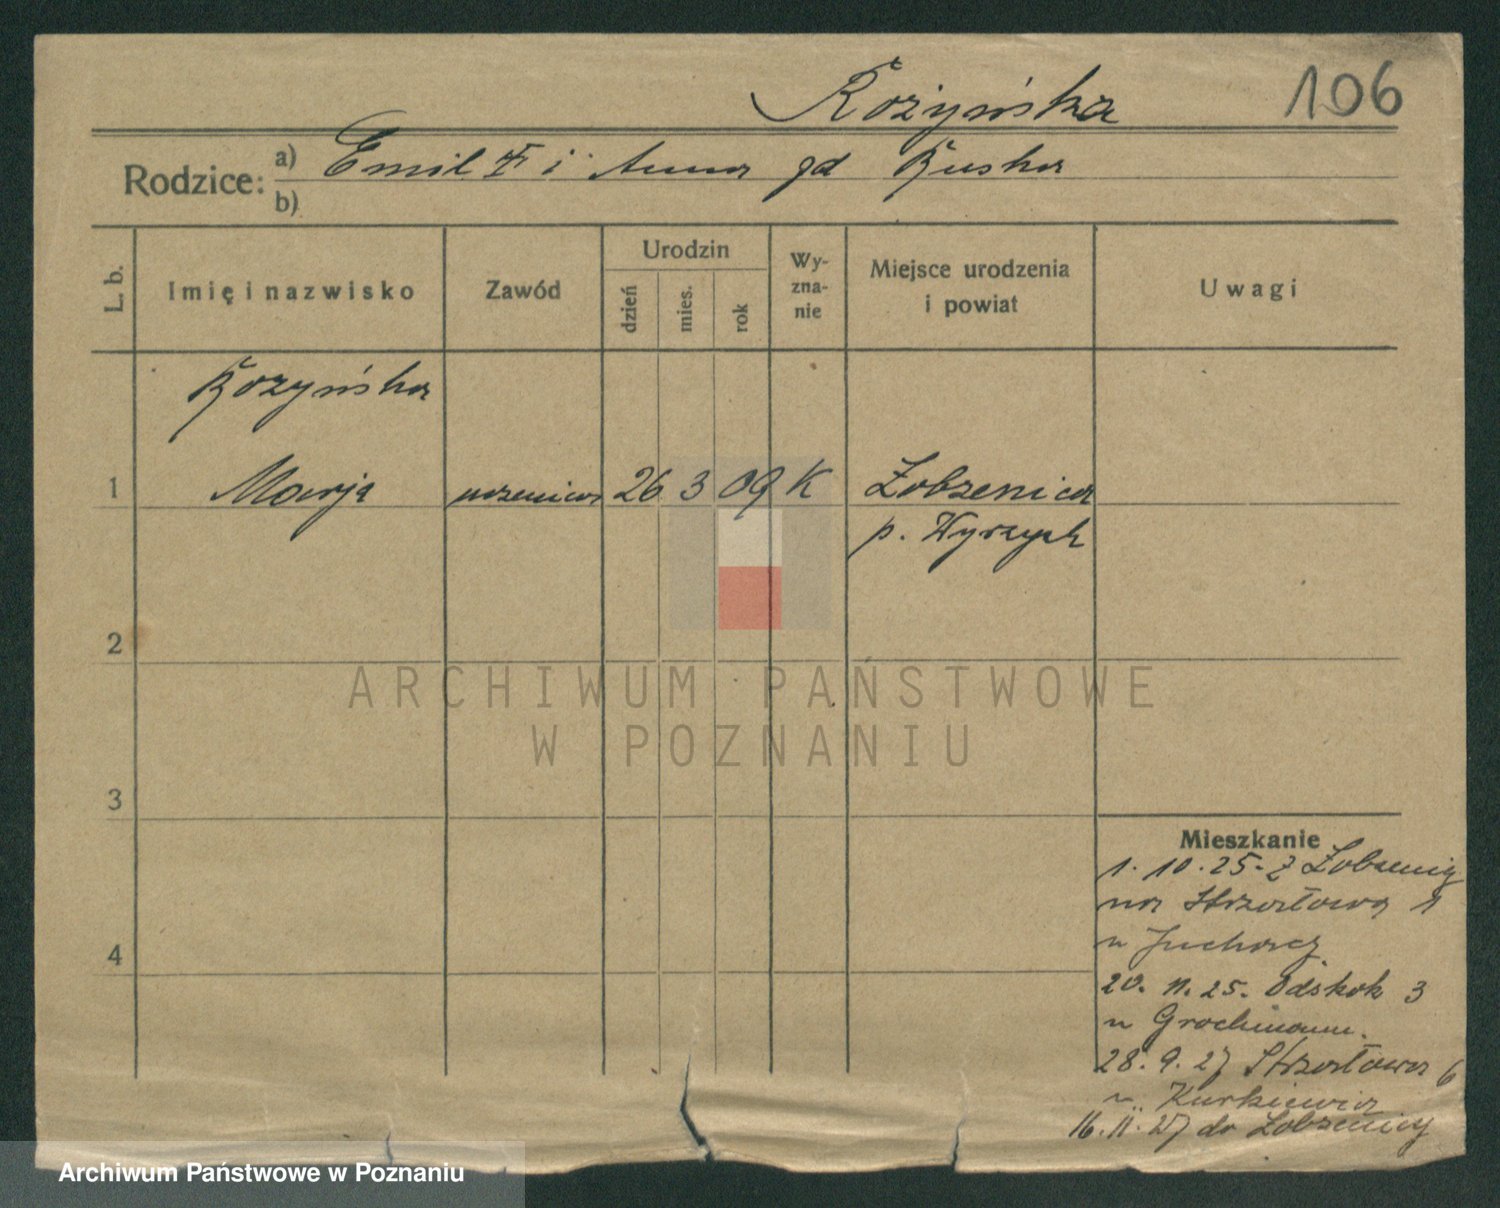 Rożyńska 106
Rodzice: a) Emil i Anna gd Ruska
b)
L. b. Imię i nazwisko Zawód Urodzin Wyznanie Miejsce urodzenia i powiat Uwagi
dzień mies. rok
Rozyńska
1 Marja uczenica 26 3 09 K Łobżenica
p. Wyrzysk
2
ARCHIWUM PAŃSTWOWE
W POZNANIU
3
Mieszkanie
1. 10. 25 - z Łobżenicy
na Strzałową 1
u
4
20. 11. 25. Odskok 3
u Grochmann.
28. 9. 27 Strzałowa 6
u. Kurkiewicz
16. 11. 27 do Łobżenicy
Archiwum Państwowe w Poznaniu